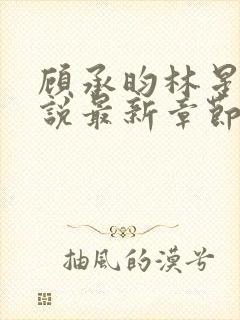 顧承昀林星
說最新章節
抽風的漠兮